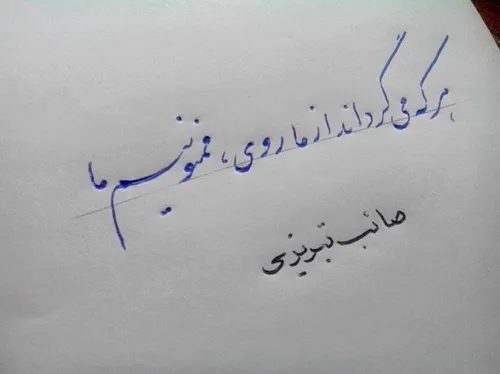 هر که می گرداند از ما روی، ممنونیم ما
صائب تبریزی